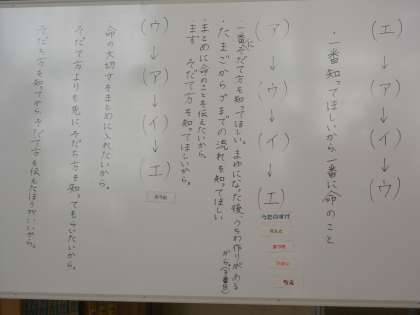 (エ)→(ア)→(イ)→(ウ)
・一番知ってほしいから一番に命のこと
(ア)→(ウ)→(イ)→(エ)
一番にそだて方を知ってほしい。まゆになった後、うちわ作りがある
から(3番目)
・たまごからガまでの流れを知ってほしい
・まとめに命のことを伝えたいから。
まず そだて方を知ってほしいから。
(ウ)→(ア)→(イ)→(エ)
命の大切さをまとめに入れたいから。
そだて方よりも先にそだち方を知ってもらいたいから。
そだち方を知ってからそだて方を伝えたほうがいいから。